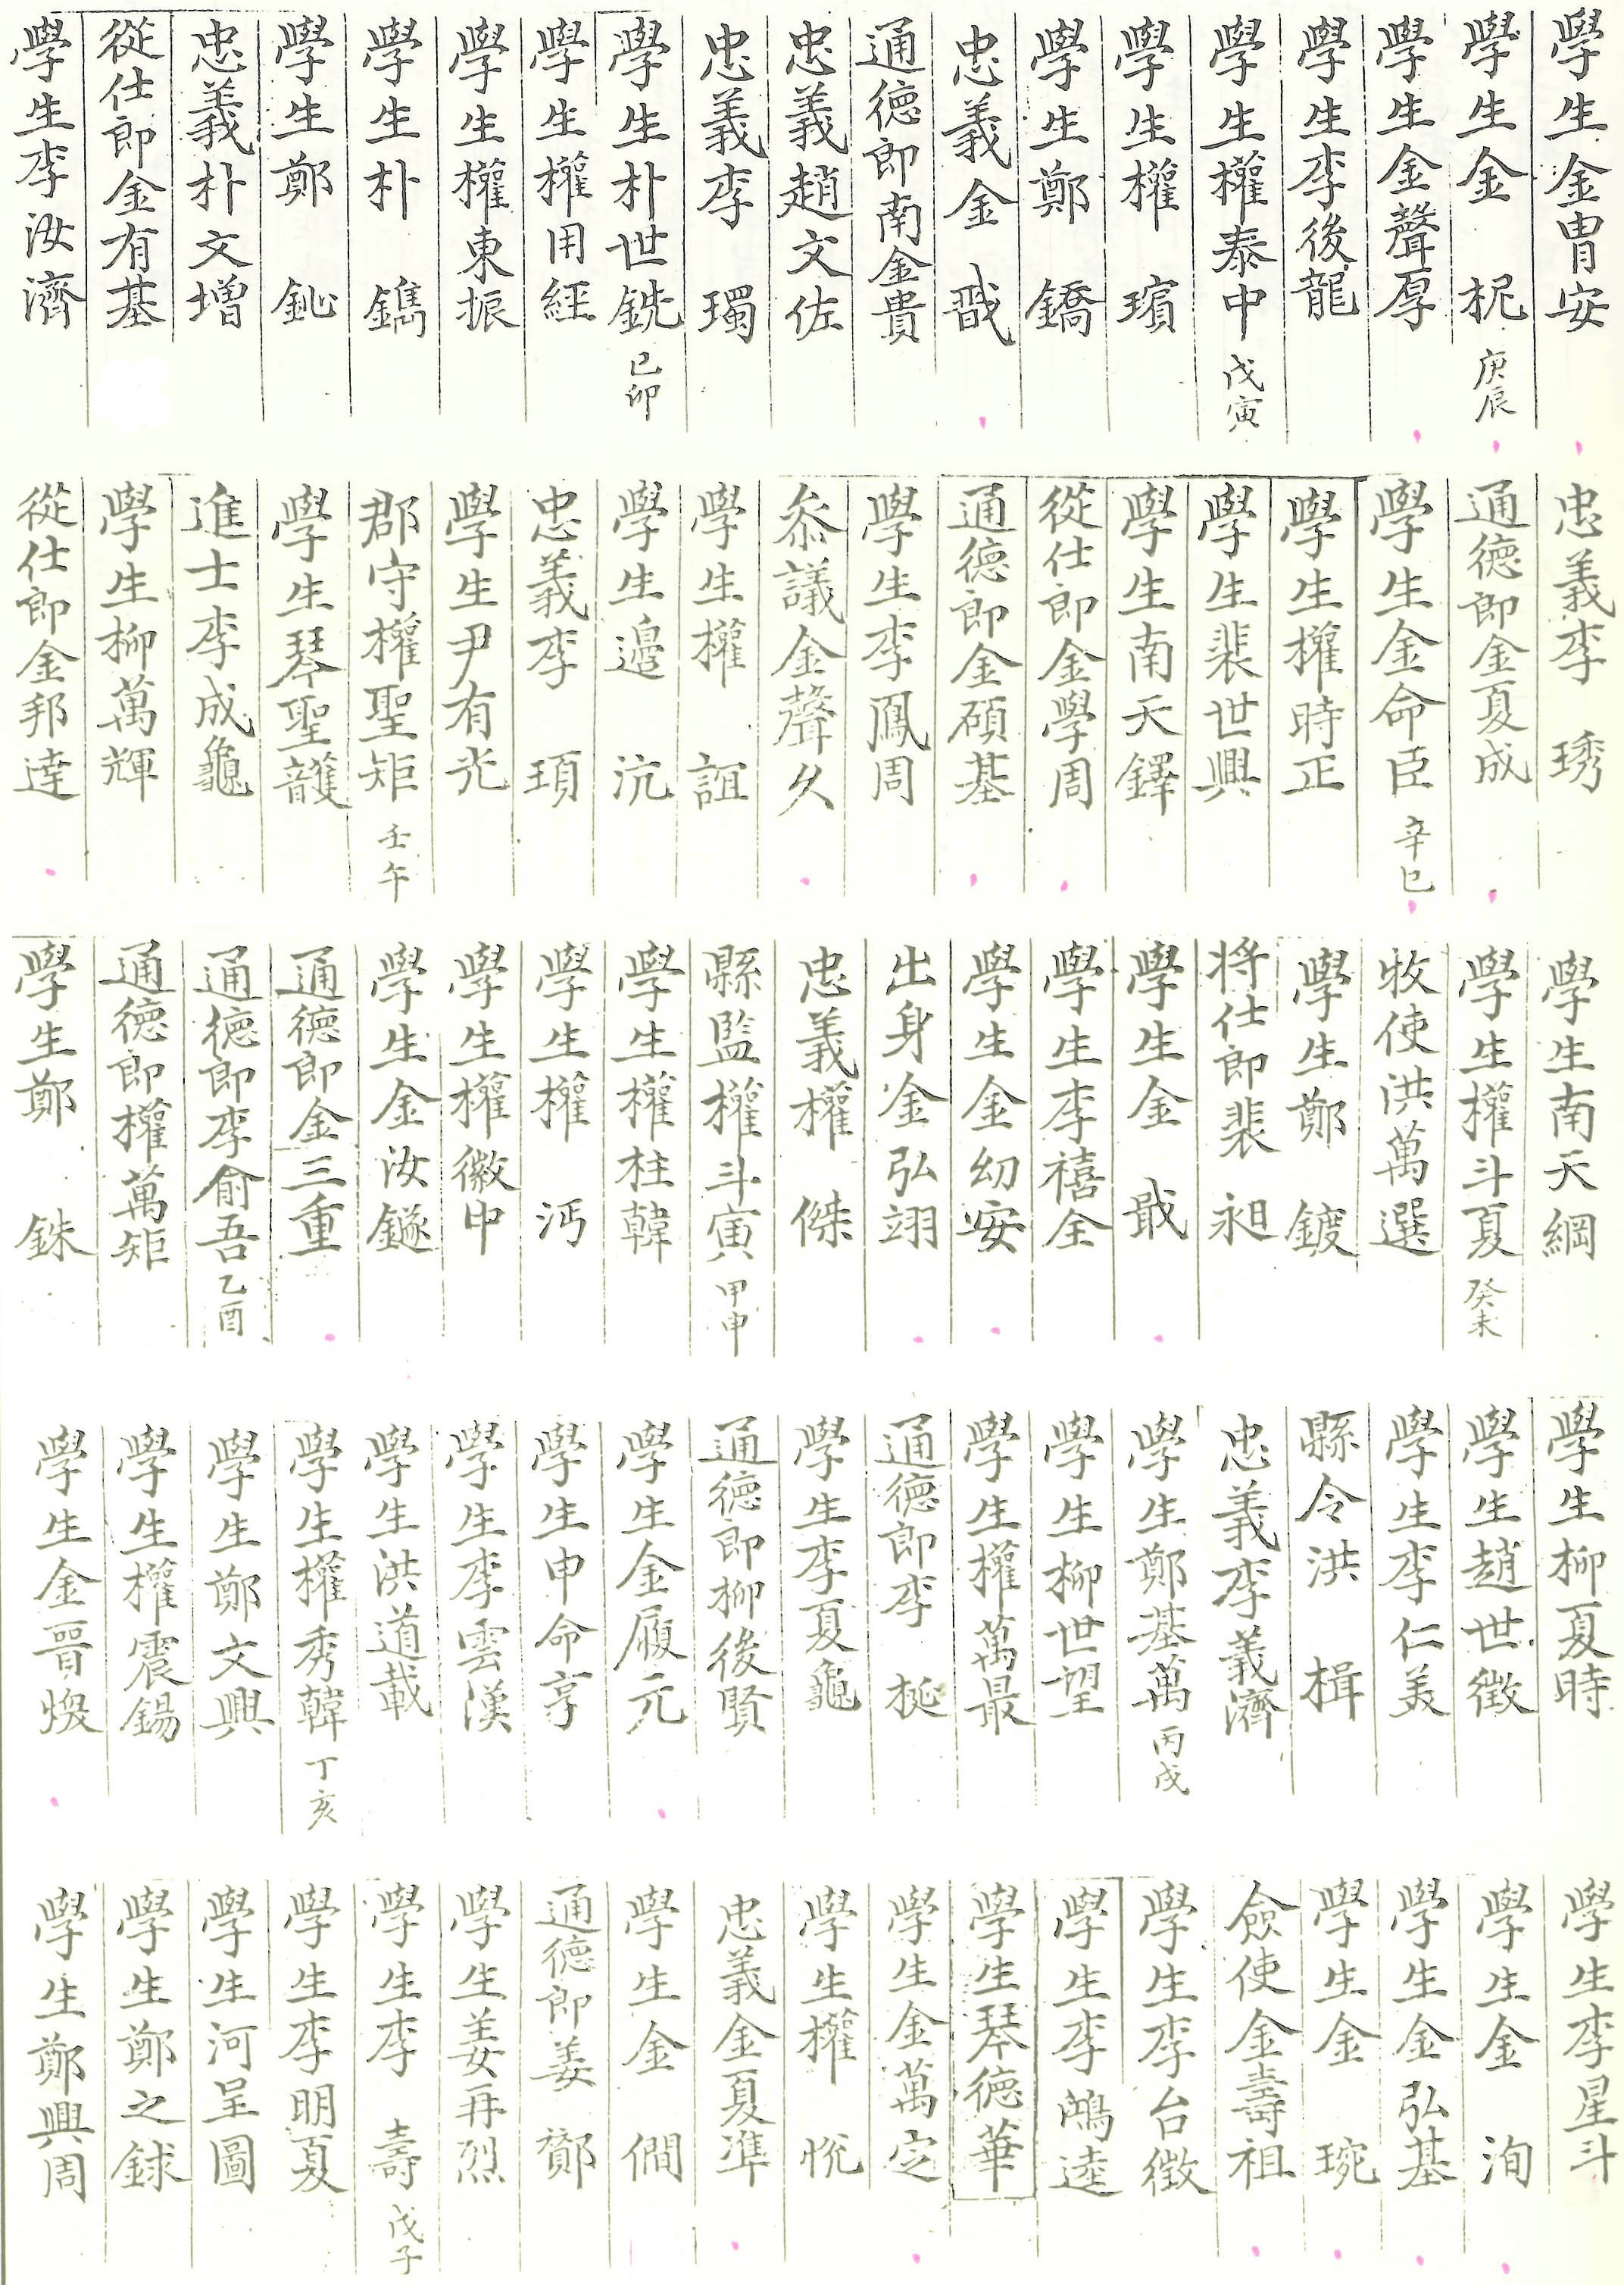 學生金胄安
學生金柅 庚辰
學生金聲厚
學生李後龍
學生權泰中 戊寅
學生權璸
學生鄭鐈
忠義金戩
通德郎南金貴
忠義趙文佐
忠義李璛
學生朴世銑 已卯
學生權用經
學生權東振
學生朴鐫
學生鄭鈊
忠義朴文增
從仕郎金有基
學生李汝濟
忠義李琇
通德郎金夏成
學生金命臣 辛巳
學生權時正
學生裴世興
學生南天鐸
從仕郎金學周
通德郎金碩基
學生李鳳周
叅議金聲久
學生權誼
學生邊沆
忠義李頊
學生尹有光
郡守權聖矩 壬午
學生琴聖頀
進士李成龜
學生柳萬輝
從仕郎金邦達
學生南天綱
學生權斗夏 癸未
牧使洪萬選
學生鄭鍍
將仕郎裴昶
學生金戢
學生李禧全
學生金幼安
出身金弘翊
忠義權傑
縣監權斗寅 甲申
學生權柱韓
學生權沔
學生權徽中
學生金汝鐩
通德郎金三重
通德郎李俞吾 乙酉
通德郎權萬矩
學生鄭銖
學生柳夏時
學生趙世徵
學生李仁美
縣令洪楫
忠義李義濟
學生鄭基萬 丙戌
學生柳世望
學生權萬最
通德郎李梴
學生李夏龜
通德郎柳後賢
學生金履元
學生申命享
學生李雲漢
學生洪道載
學生權秀韓 丁亥
學生鄭文興
學生權震錫
學生金晋煥
學生李星斗
學生金洵
學生金弘基
學生金琬
僉使金壽祖
學生李台徵
學生李鴻逵
學生琴德華
學生金萬定
學生權悅
忠義金夏準
學生金僩
通德郎姜酇
學生姜再烈
學生李壽 戊子
學生李明夏
學生河呈圖
學生鄭之銶
學生鄭興周